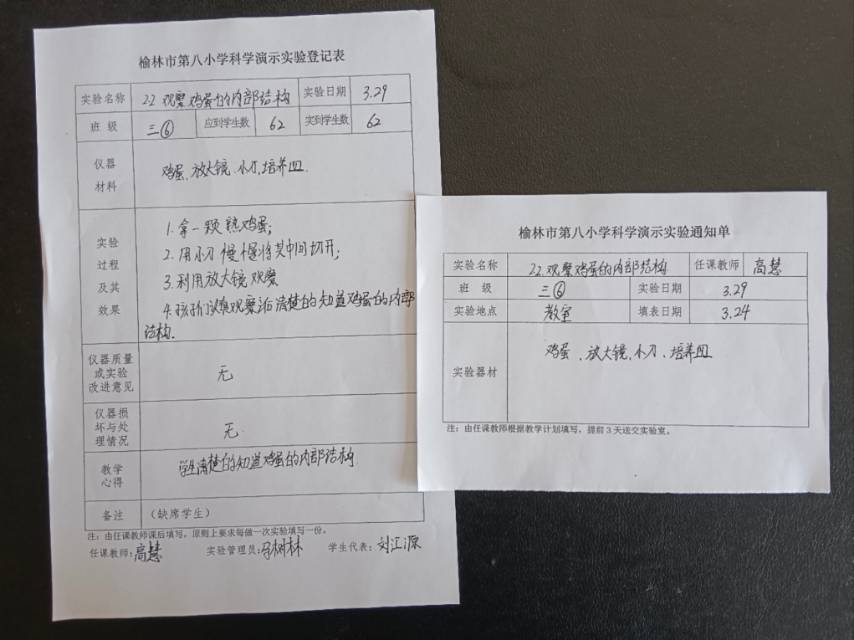 榆林市第八小学科学演示实验登记表
实验名称 22 观察鸡蛋的内部结构 实验日期 3.29
班 级 三⑥ 应到学生数 62 实到学生数 62
仪器
材料
鸡蛋、放大镜、小刀、培养皿
实验
过程
及其
效果
1. 拿一颗熟鸡蛋;
2. 用小刀慢慢将其中间切开;
3. 利用放大镜观察
4. 孩子们认真观察后清楚的知道鸡蛋的内部
结构.
仪器质量
或实验
改进意见
无
仪器损
坏与处
理情况
无
教学
心得
学生清楚的知道鸡蛋的内部结构
备注 (缺席学生)
注:由任课教师课后填写,原则上要求每做一次实验填写一份。
任课教师:高慧 实验管理员:马树林 学生代表:刘江源
榆林市第八小学科学演示实验通知单
实验名称 22.观察鸡蛋的内部结构 任课教师 高慧
班 级 三⑥ 实验日期 3.29
实验地点 教室 填表日期 3.24
实验器材
鸡蛋、放大镜、小刀、培养皿
注:由任课教师根据教学计划填写,提前3天送交实验室。